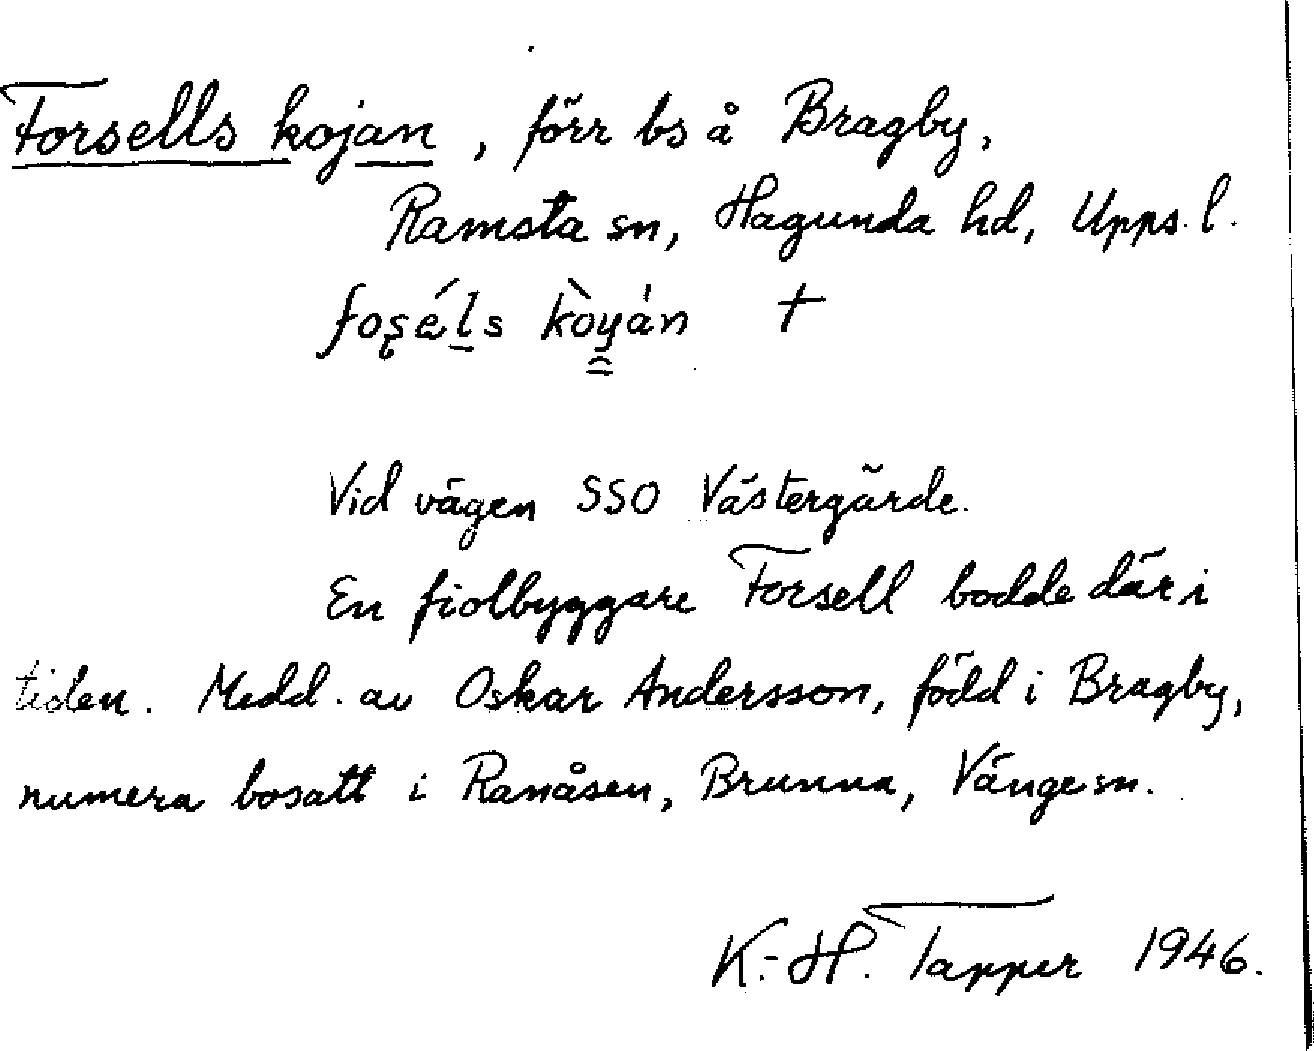 Forsells kojan, förr bs å Bragby,
Ramsta sn, Hagunda hd, Upps. l.
foʂéls kòyán †
Vid vägen SSO Västergärde.
En fiolbyggare Forsell bodde där i
tiden. Medd. av Oskar Andersson, född i Bragby,
numera bosatt i Ranåsen, Brunna, Vänge sn.
K.-H. Tapper 1946.